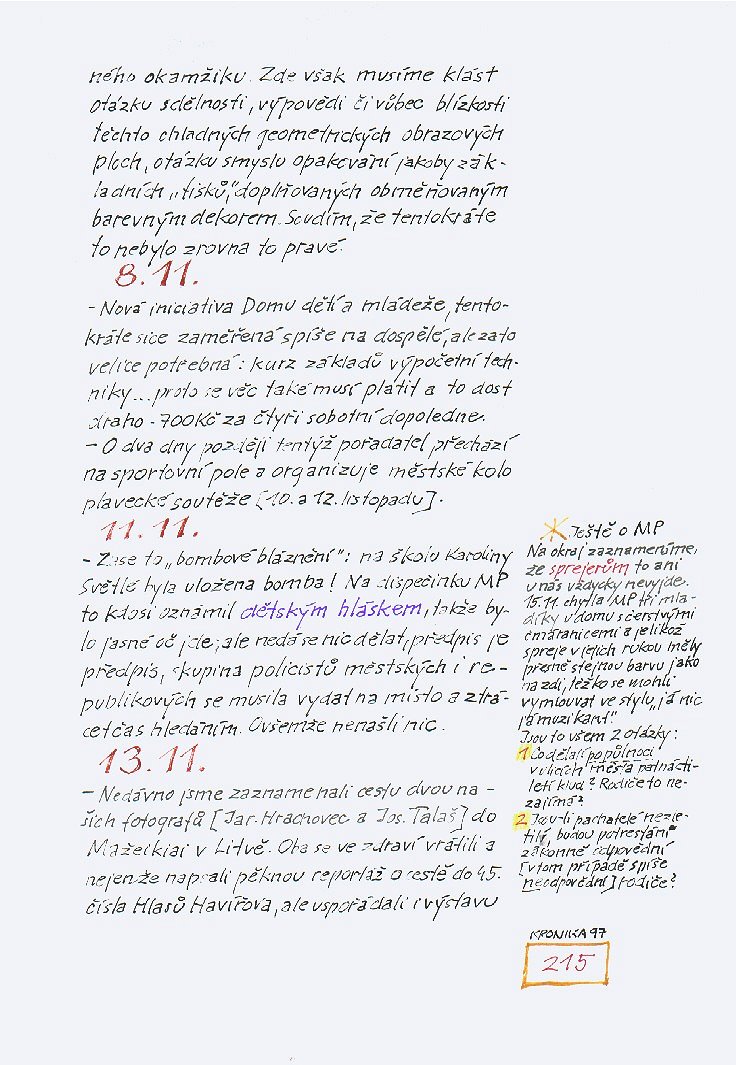 ného okamžiku. Zde však musíme klást
otázku sdělnosti, výpovědi či vůbec blízkosti
těchto chladných geometrických obrazových
ploch, otázku smyslu opakování jakoby zák-
ladních „tisků“, doplňovaných obměňovaným
barevným dekorem. Soudím, že tentokráte
to nebylo zrovna to pravé.
8.11.
- Nová iniciativa Domu dětí a mládeže, tento-
kráte sice zaměřená spíše na dospělé, ale zato
velice potřebná: kurz základů výpočetní tech-
niky... proto se věc také musí platit a to dost
draho - 700Kč za čtyři sobotní dopoledne.
- O dva dny později tentýž pořadatel přechází
na sportovní pole a organizuje městské kolo
plavecké soutěže [10. a 12. listopadu].
11.11.
- Zase to „bombové bláznění“: na školu Karoliny
Světlé byla uložena bomba! Na dispečinku MP
to kdosi oznámil dětským hláskem, takže by-
lo jasné oč jde; ale nedá se nic dělat, předpis je
předpis, skupina policistů městských i re-
publikových se musila vydat na místo a ztrá-
cet čas hledáním. Ovšemže nenašli nic.
13.11.
- Nedávno jsme zaznamenali cestu dvou na-
šich fotografů [Jar. Hrachovec a Jos. Talaš] do
Mažeikiai v Litvě. Oba se ve zdraví vrátili a
nejenže napsali pěknou reportáž o cestě do 45.
čísla Hlasů Havířova, ale uspořádali i výstavu
Ještě o MP
Na okraj zaznamenáme,
že sprejerům to ani
u nás vždycky nevyjde.
15.11. chytla MP tři mla-
díky u domu s čerstvými
čmáranicemi a jelikož
spreje v jejich rukou měly
přesně stejnou barvu jako
na zdi, těžko se mohli
vymlouvat ve stylu „já nic
já muzikant!“
Jsou to všem 2 otázky:
1 Co dělají po půlnoci
v ulicích města patnácti-
letí kluci? Rodiče to ne-
zajímá?
2 Jsou-li pachatelé nezle-
tilí, budou potrestáni
zákonně odpovědní
[v tom případě spíše
neodpovědní] rodiče?
KRONIKA 97
215